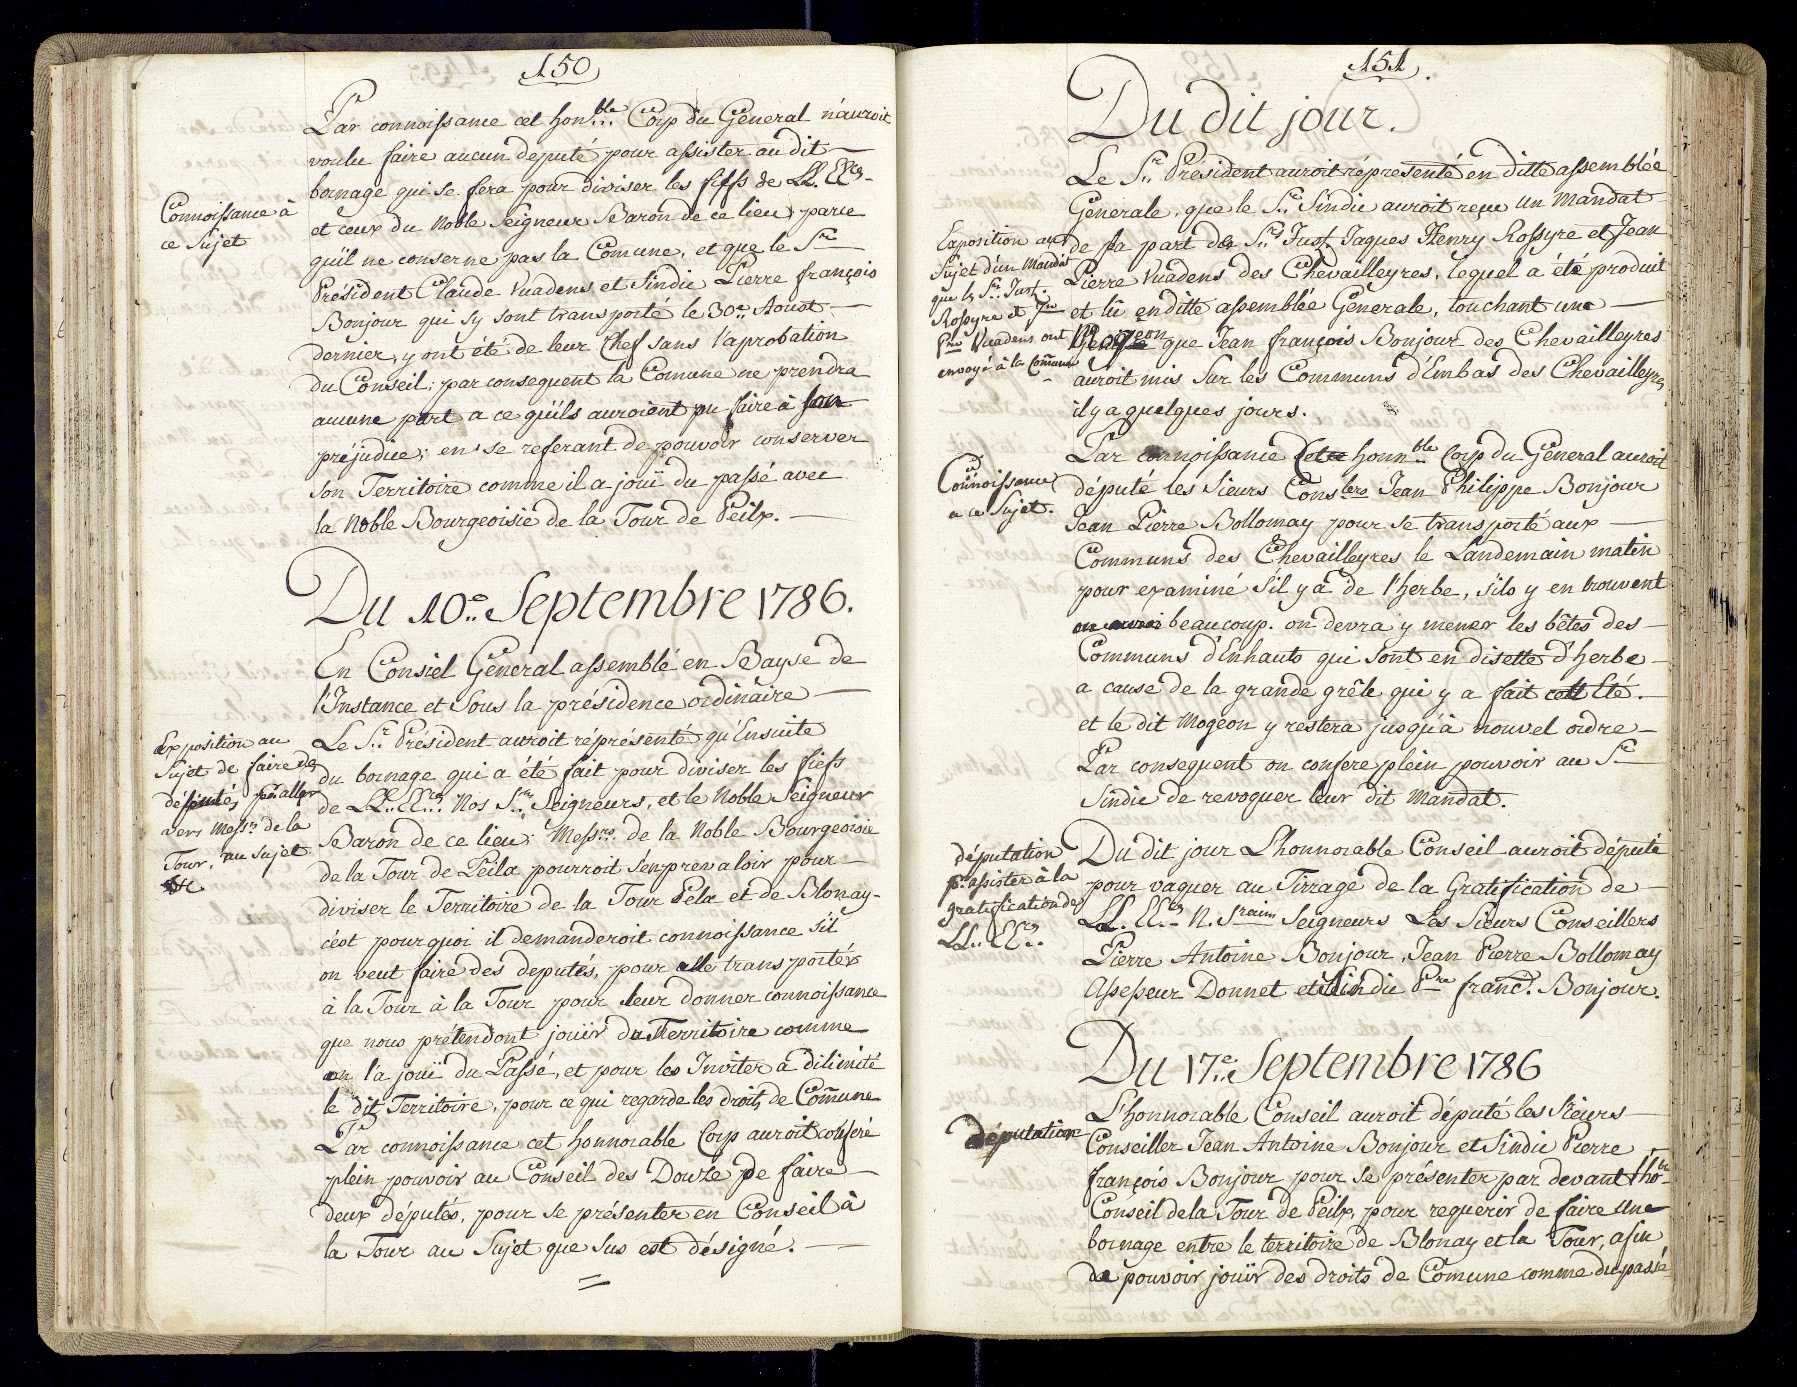 150
Par connoissance cet hon:ble Corp du General n'auroit
voulu faire aucun deputé pour assister au dit
bornage qui se fera pour diviser les fiefs de LL. EEces
et ceux du Noble Seigneur Baron de ce lieu, parce
qu'il ne conserne pas la Comune, et que le Sr
Président Claude Vuadens et Sindic Pierre françois
Bonjour qui s'y sont transporté le 30e Aoust
dernier, y ont été de leur Chef sans l'aprobation
du Conseil; par consequent la Comune ne prendra
aucune part a ce qu'ils auroient pu faire à son
préjudice; en se referant de pouvoir conserver
son Territoire comme il a joüi du passé avec
la Noble Bourgeoisie de la Tour de Peilx.
Connoissance à
ce Sujet
Du 10e Septembre 1786.
En Consiel Géneral assemblé en Bayse de
l'Instance et Sous la présidence ordinaire
Le Sr Président auroit réprésenté qu'Ensuite
du bornage qui a été fait pour diviser les fiefs
de LL. EEces Nos Srs Seigneurs, et le Noble Seigneur
Baron de ce lieu; Messrs de la Noble Bourgeoisie
de la Tour de Peila pourroit s'en prevaloir pour
diviser le Territoire de la Tour Pela et de Blonay
c'est pourquoi il demanderoit connoissance s'il
on veut faire des deputés, pour alle transportér
à la Tour à la Tour pour leur donner connoissance
que nous prétendont joüir du Territoire comme
on l'a joüi du Passé, et pour les Inviter à dilimité
le dit Territoire, pour ce qui regarde les droits de Comune
Par connoissance cet honnorable Corp auroit conferé
plein pouvoir au Conseil des Douze de faire
deux députés, pour se présenter en Conseil à
la Tour au Sujet que Sus est désigné.
Exposition au
Sujet de faire des
députés, pr aller
vers Messrs de la
Tour, au sujet
151.
Du dit jour.
Le Sr Président auroit répresenté en ditte assemblée
Génerale, que le Sr Sindic auroit reçu un Mandat
de la part des Srs Just. Jaques Henry Rossyre et Jean
Pierre Vuadens des Chevailleyres, lequel a été produit
et lû en ditte assemblée Génerale, touchant une
Mogeon que Jean françois Bonjour des Chevailleyres
auroit mis Sur les Communs d'Embas des Chevailleyres
il y a quelques jours.
Exposition au
Sujet d'un Mandat
que les Srs Just.
Rossyre et Jn
Pre Vuadens ont
envoyé à la Comune
Par connoissance Cette honnble Corp du General auroit
député les Sieurs Conslers Jean Philippe Bonjour
Jean Pierre Bollomay pour se transporté aux
Communs des Chevailleyres le Landemain matin
pour examiné s'il y a de l'herbe, s'ils y en trouvent
beaucoup. on devra y mener les bêtes des
Communs d'Enhauts qui Sont en disette d'herbe
a cause de la grande grêle qui y a fait cett Eté.
et le dit Mogeon y restera jusqu'à nouvel ordre
Par consequent on confere plein pouvoir au Sr
Sindic de revoquer leur dit Mandat.
Connoissance
a ce Sujet.
Du dit jour L'honnorable Conseil auroit député
pour vaquer au Tirrage de la Gratification de
LL. EEces N. Srains Seigneurs Les Sieurs Conseillers
Pierre Antoine Bonjour, Jean Pierre Bollomay
Assesseur Donnet et Sindic Pre franc. Bonjour.
députation
pr assister à la
gratification de
LL. EEces
Du 17e Septembre 1786
L'honnorable Conseil auroit député les Sieurs
Conseiller Jean Antoine Bonjour et Sindic Pierre
françois Bonjour pour se présenter par devant l'hoble
Conseil de la Tour de Peilx, pour requerir de faire une
bornage entre le territoire de Blonay et la Tour, afin
de pouvoir joüir des droits de Comune comme du passé
députation